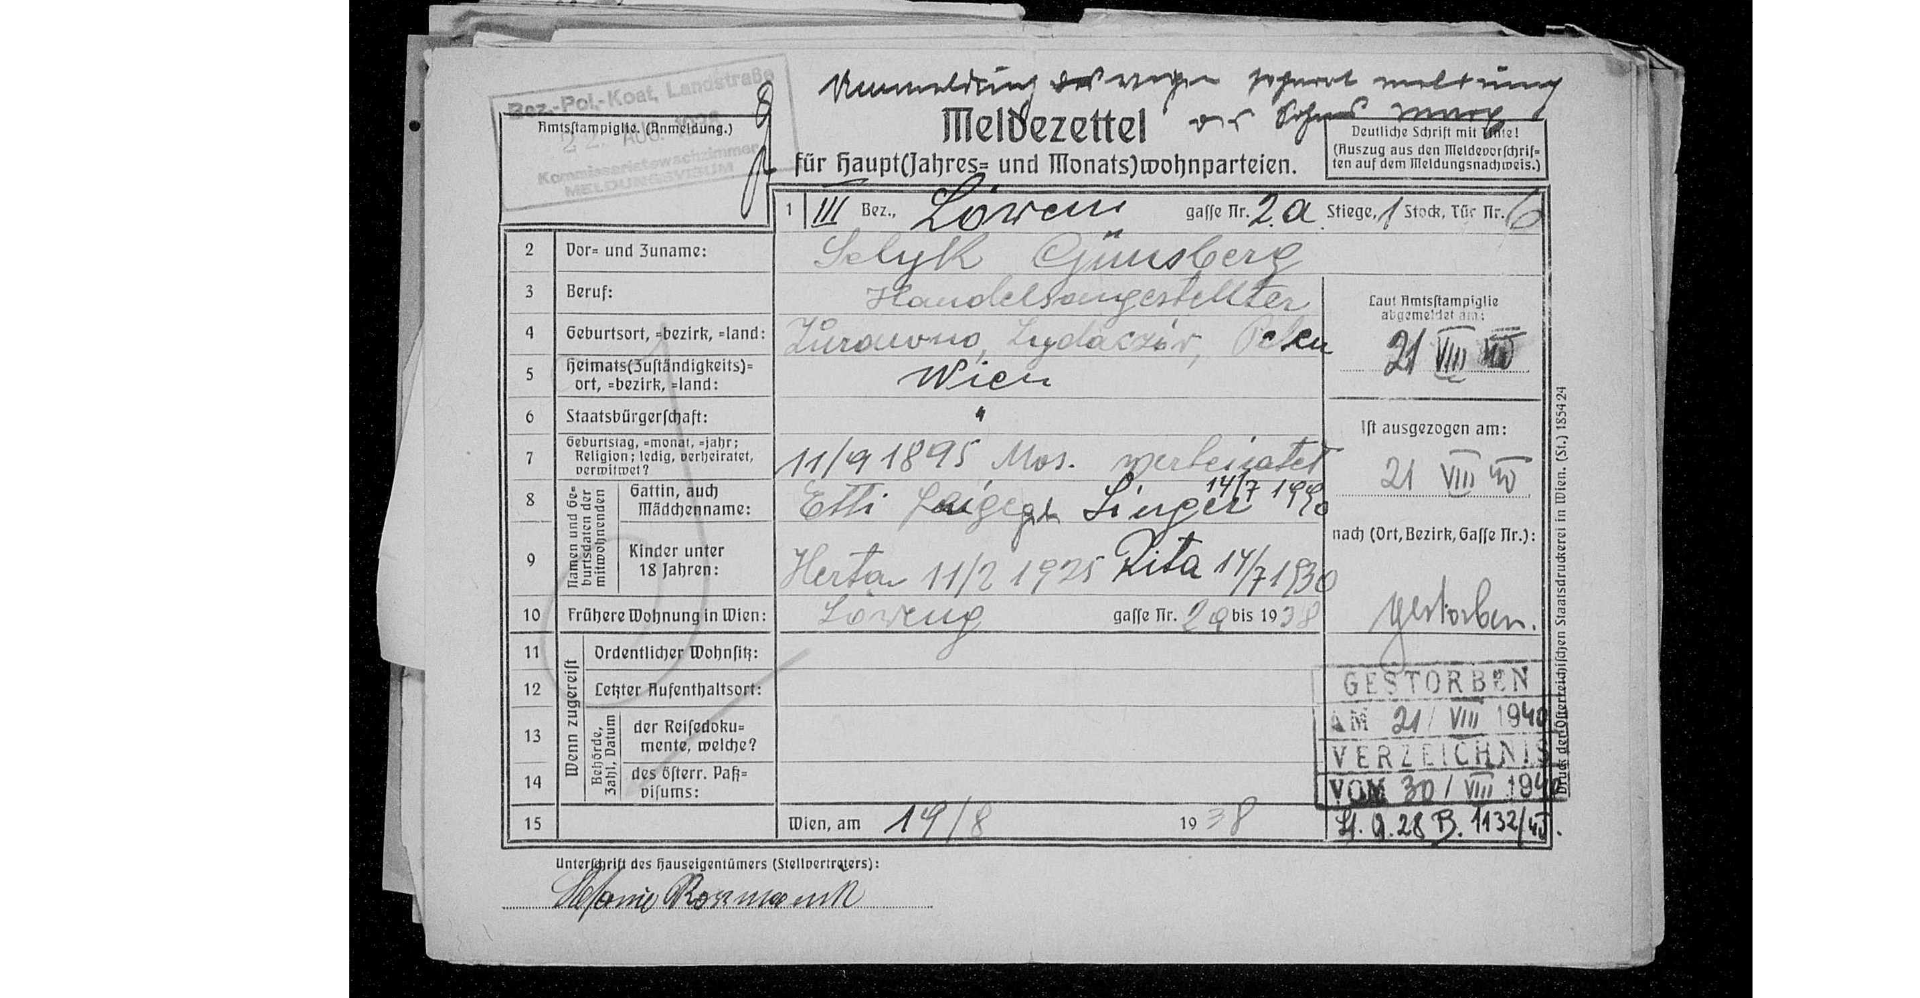 Anmeldung
Bez.-Pol.-Koat. Landstraße
22. AUG. 1938
Kommissariatswachzimmer
MELDUNGSVISUM
Amtsstampiglie. (Anmeldung.)
Meldezettel
für Haupt(Jahres- und Monats)wohnparteien.
Deutliche Schrift mit Tinte!
(Auszug aus den Meldevorschrif-
ten auf dem Meldungsnachweis.)
1 III Bez., Löwen gasse Nr. 2a Stiege, 1 Stock, Tür Nr. 6
2 Vor- und Zuname: Selyk Günsberg
3 Beruf: Handelsangestellter
4 Geburtsort, -bezirk, -land: Zurawno, Polen
5 Heimats(Zuständigkeits)-
ort, -bezirk, -land: Wien
6 Staatsbürgerschaft: "
7 Geburtstag, -monat, -jahr;
Religion; ledig, verheiratet,
verwitwet? 11/9 1895 Mos. verheiratet
Namen und Ge-
burtsdaten der
mitwohnenden
8 Gattin, auch
Mädchenname: Etti Singer 14/7
9 Kinder unter
18 Jahren: Herta 11/2 1925 Rita 14/7 1930
10 Frühere Wohnung in Wien: Löweng gasse Nr. 2a bis 1938
Wenn zugereist
11 Ordentlicher Wohnsitz:
12 Letzter Aufenthaltsort:
Behörde,
Zahl, Datum
13 der Reisedoku-
mente, welche?
14 des österr. Paß-
visums:
15 Wien, am 19/8 1938
Laut Amtsstampiglie
abgemeldet am:
21 VIII 40
Ist ausgezogen am:
21 VIII 40
nach (Ort, Bezirk, Gasse Nr.):
gestorben.
GESTORBEN
AM 21/VIII 1940
VERZEICHNIS
VOM 30/VIII 1940
B. 1132/40.
Druck der Österreichischen Staatsdruckerei in Wien. (St.) 1854 24
Unterschrift des Hauseigentümers (Stellvertreters):